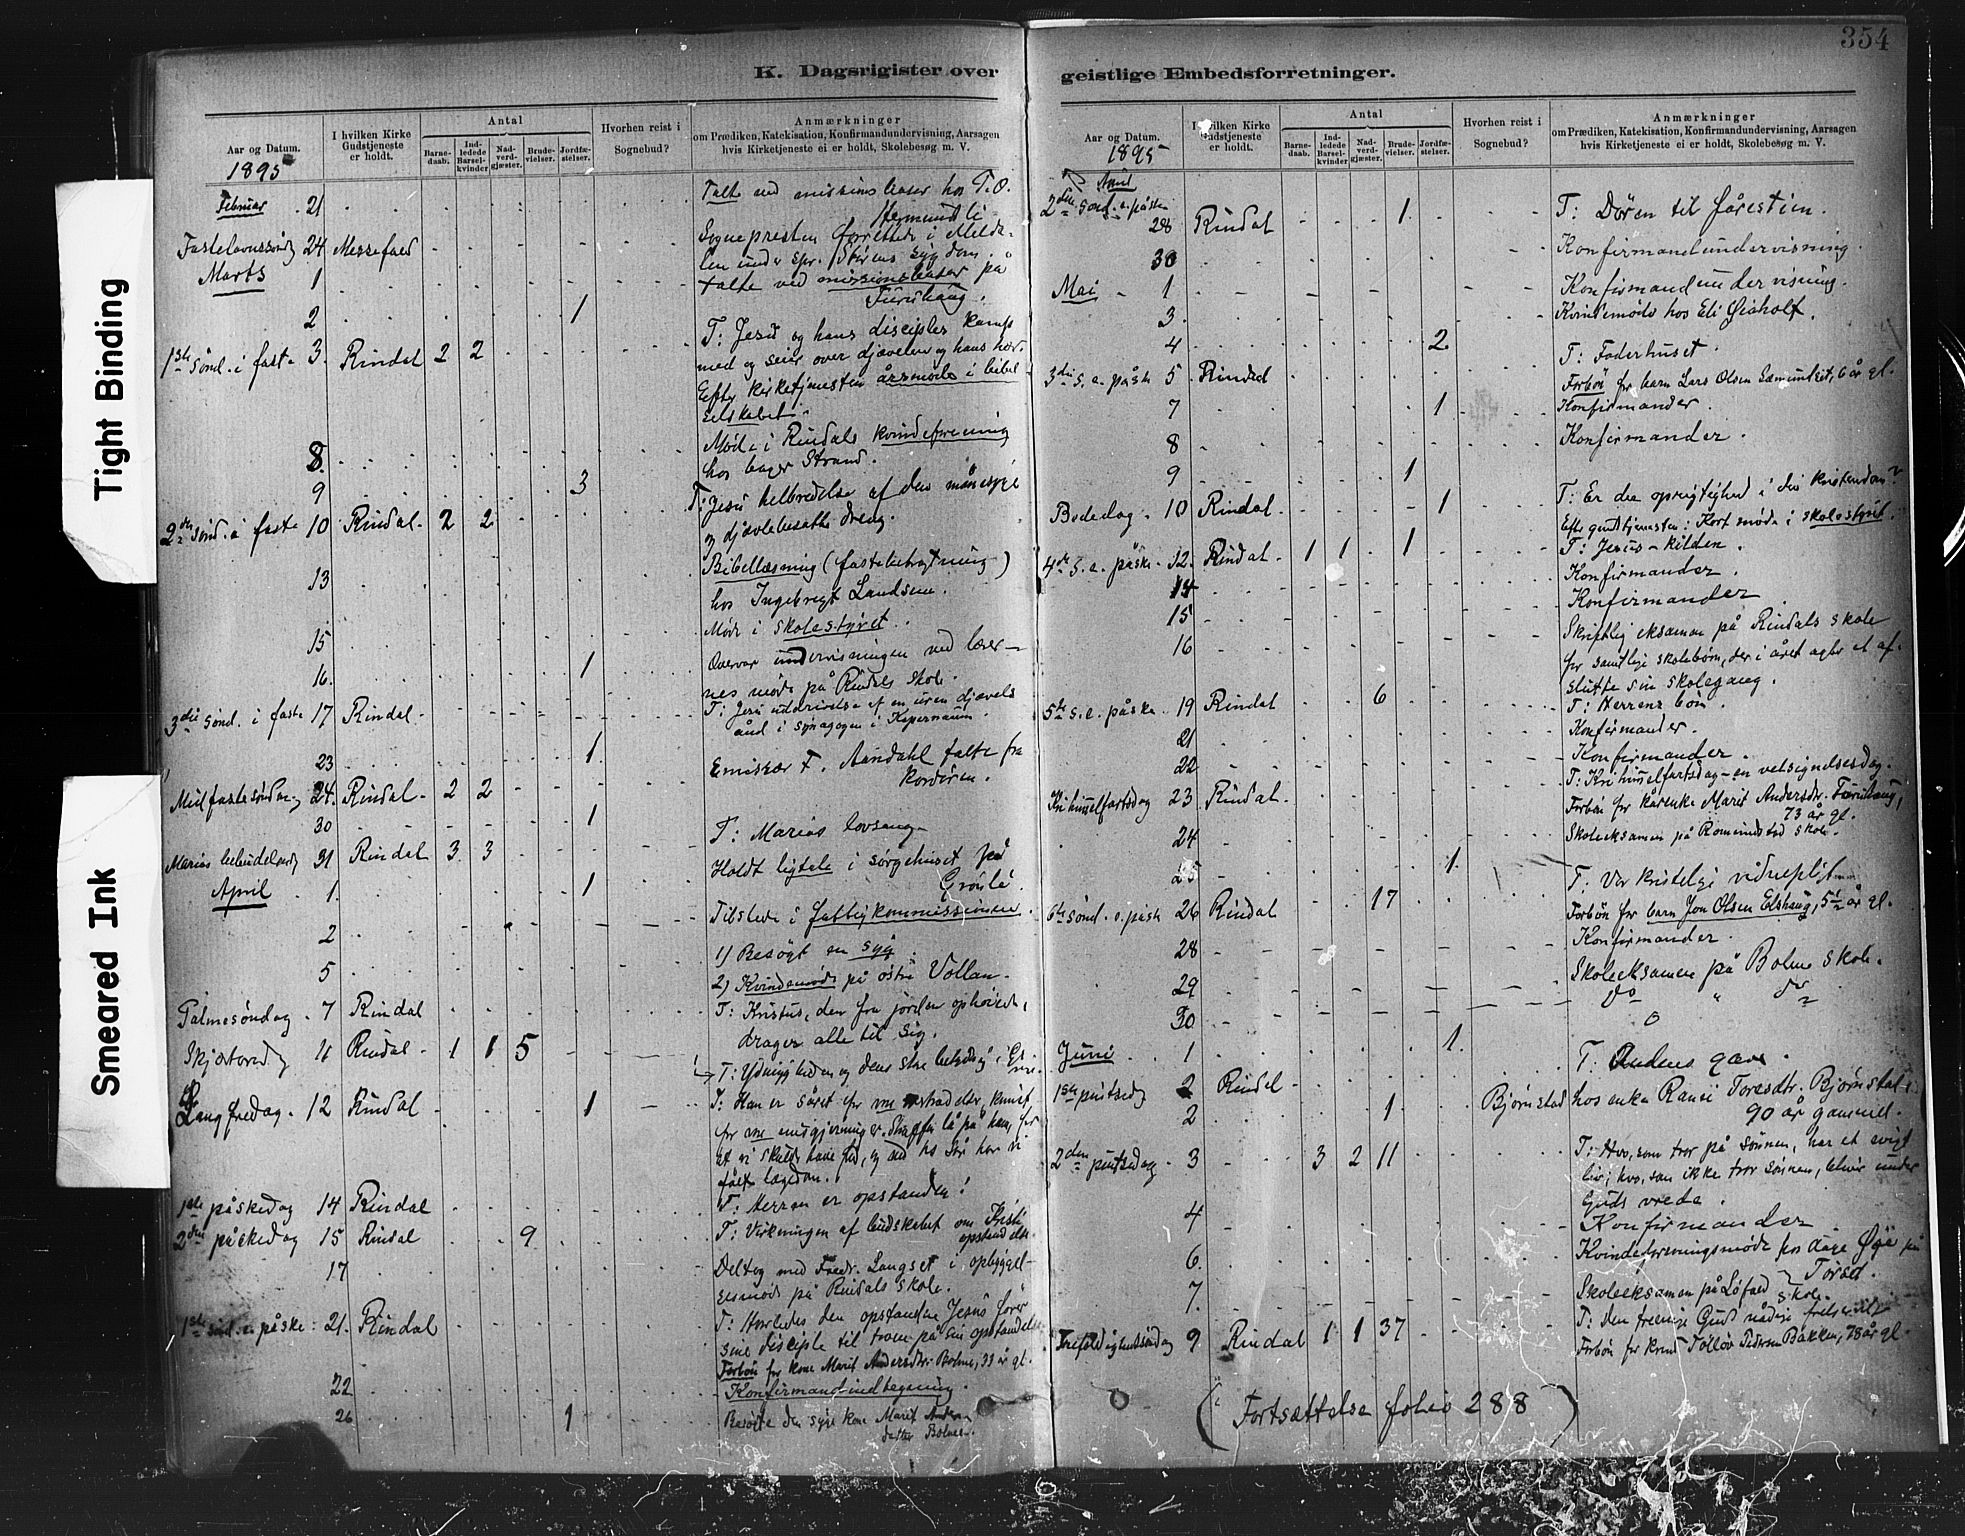 354
K. Dagsrigister over
geistlige Embedsforretninger.
Aar og Datum.
1895
I hvilken Kirke Gudstjeneste er holdt.
Antal
Barne-daab.
Ind-ledede Barsel-kvinder
Nad-verd-gjæster.
Brude-vielser.
Jordfæ-stelser.
Hvorhen reist i Sognebud?
Anmærkninger
om Prædiken, Katekisation, Konfirmandundervisning, Aarsagen
hvis Kirketjeneste ei er holdt, Skolebesøg m. V.
Februar 21 Talte ved missionsleser hos T. O.
Hermundsli
Fastelavnssøndag 24 Messefald Sognepresten forrettede i Melda-
len under spr. Størens sygdom.
Marts 1 talte ved missionsleser på
Furuhaug.
2 1
1ste sønd. i faste 3. Rindal 2 2 T: Jesu og hans disciples kamp
med og seier over djævelen og hans hær.
Efter kirketjenesten årsmøde i bibel-
selskabet.
8. Møde i Rindals kvindeforening
hos bager Strand.
9 3
2den sønd. i faste 10 Rindal 2 2 T: Jesu helbredelse af den månesyge
og djævlebesatte dreng.
13 Bibellæsning (fastebetragtning)
hos Ingebrigt Landsem.
15 Møde i skolestyret.
16. 1 Overvar undervisningen ved lærer-
nes møde på Rindals skole.
3die sønd. i faste 17 Rindal T: Jesu uddrivelse af en uren djævels
ånd i synagogen i Kapernaum.
23 1 Emissær F. Aandahl talte fra
kordøren.
Midfastesøndag 24. Rindal 2 2
30 1 T: Marias lovsang
Marias bebudelsesdag 31 Rindal 3 3 Holdt ligtale i sørgehuset på
Grønli.
April 1. 1
2 Tilstede i fattigkommissionen.
5 1) Besøgt en syg.
2) Kvindemøde på østre Vollan.
Palmesøndag 7 Rindal T: Kristus, der fra jorden ophøiede,
drager alle til sig.
Skjærtorsdag 11 Rindal 1 1 5 T: Ydmygheden og dens store betydning
Langfredag 12 Rindal 1 T: Han er såret for vore overtrædelser, knust
for vore misgjerninger. Straffen lå på ham, for
at vi skulde have fred, og ved hs sår har vi
fået lægedom.
1ste påskedag 14 Rindal T: Herren er opstanden!
2den påskedag 15 Rindal 9 T: Virkningen af budskabet om Kristi
opstandelse
17 Deltog med Fredr. Langset i opbyggel-
sesmøde på Rindals skole.
1ste sønd. e. påske 21. Rindal T: Hvorledes den opstandne Jesus fører
sine disciple til troen på sin opstandelse
Forbøn for kone Marit Andersdtr. Bolme, 33 år gl.
22 Konfirmandindtegning.
26 1 Besøgte den syge kone Marit Anders-
datter Bolme.
Aar og Datum.
1895
I hvilken Kirke Gudstjeneste er holdt.
Antal
Barne-daab.
Ind-ledede Barsel-kvinder
Nad-verd-gjæster.
Brude-vielser.
Jordfæ-stelser.
Hvorhen reist i Sognebud?
Anmærkninger
om Prædiken, Katekisation, Konfirmandundervisning, Aarsagen
hvis Kirketjeneste ei er holdt, Skolebesøg m. V.
April
2den sønd. e. påske 28 Rindal 1 T: Døren til fårestien.
30 Konfirmandundervisning.
Mai 1 Konfirmandundervisning.
3. Kvindemøde hos Eli
4 2
3die s. e. påske 5 Rindal T: Faderhuset.
Forbøn for barn Lars Olsen 6 år gl.
7 1 Konfirmander.
8 Konfirmander.
9 1
Bededag 10 Rindal 1 T: Er der oprigtighed i din kristendom?
Efter gudstjenesten: Kort møde i skolestyret.
4de s. e. påske 12. Rindal 1 1 1 T: Jesus-kilden.
14 Konfirmander.
15 Konfirmander
16 Skriftlig eksamen på Rindals skole
for samtlige skolebørn, der i året agter at af-
slutte sin skolegang.
5te s. e. påske 19 Rindal 6 T: Herrens bøn.
21 Konfirmander.
22 Konfirmander.
Kri himmelfartsdag 23 Rindal T: Kri himmelfartsdag – en velsignelsesdag.
Forbøn for kårenke Marit Andersdtr. Furuhaug,
73 år gl.
24 Skoleeksamen på Romundstad skole.
25 1.
6te sønd. e. påske 26 Rindal 17 T: Vor kristelige vidnepligt
Forbøn for barn Jon Olsen Elshaug, 5½ år gl.
28 Konfirmander.
29 Skoleeksamen på Bolme skole.
30 Do " do
Juni 1 1.
1ste pintsedag 2 Rindal T: Åndens gave.
2 1 Bjørnstad hos enke Ranei Toresdtr. Bjørnstad,
90 år gammel.
2den pintsedag 3 3 2 11 T: Hvo, som tror på sønnen, har et evigt
liv; hvo, som ikke tror sønnen, bliver under
Guds vrede.
4 Konfirmander
6. Kvindeforeningsmøde hos Øye på
Torset.
7. Skoleeksamen på Løfald skole.
Trefoldighedssøndag 9 Rindal 1 1 37 T: Den treenige Guds nådige frelservilje
Forbøn for Tolløv Pedersen Bakken, 78 år gl.
(Fortsættelse folio 288)
Tight Binding
Smeared Ink